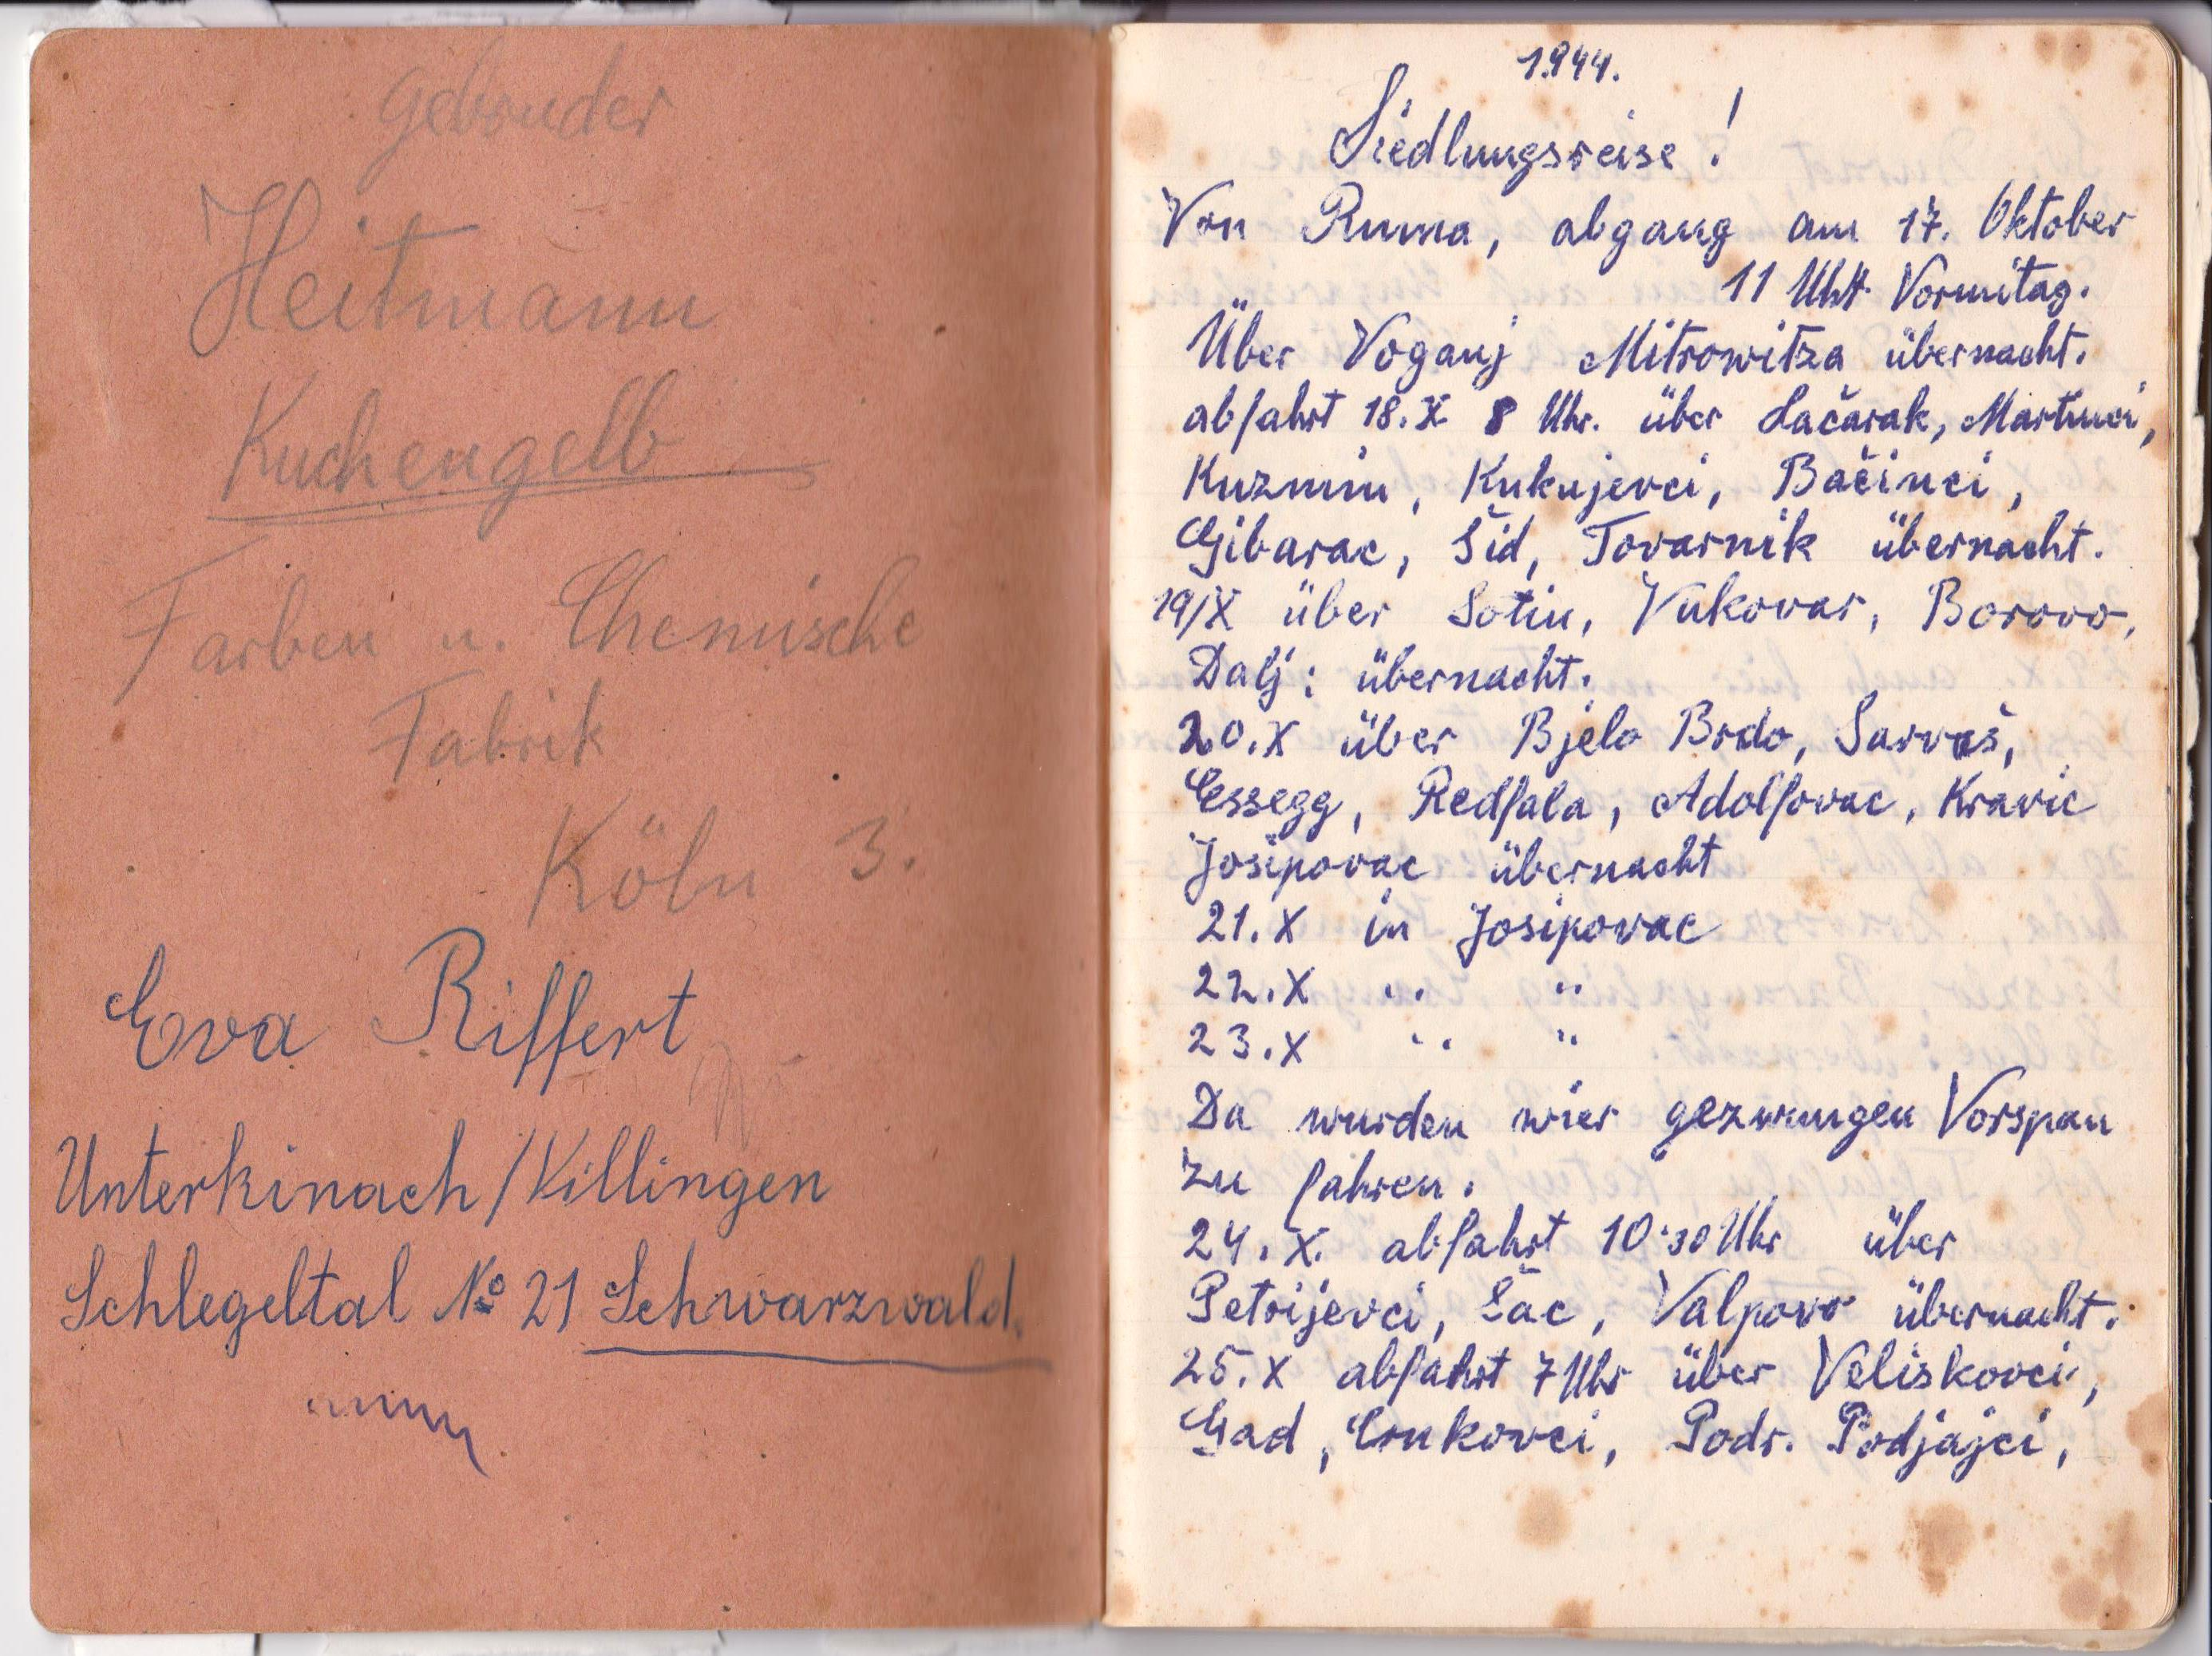 Gebruder
Heitmann
Kuchengelb
Farben u. Chemische
Fabrik
Köln 3.
Eva Riffert
Unterkinach/Villingen
Schlegeltal № 21 Schwarzwald.
1944.
Siedlungsreise!
Von Ruma, abgang am 17. Oktober
11 Uhr Vormitag.
Über Voganj Mitrowitza übernacht.
abfahrt 18.X 8 Uhr. über Lačarak, Martinci,
Kuzmin, Kukujevci, Bačinci,
Gibarac, Šid, Tovarnik übernacht.
19/X über Sotin, Vukovar, Borovo,
Dalj: übernacht.
20.X über Bjelo Brdo, Sarvaš,
Essegg, Redfala, Adolfovac, Kravic
Josipovac übernacht
21.X in Josipovac
22.X " "
23.X " "
Da wurden wier gezwungen Vorspan
zu fahren.
24.X. abfahrt 10·30 Uhr über
Petrijevci, Šac, Valpovo übernacht.
25.X abfahrt 7 Uhr über Veliskovci,
Gad, Crnkovci, Podr. Podjajci,